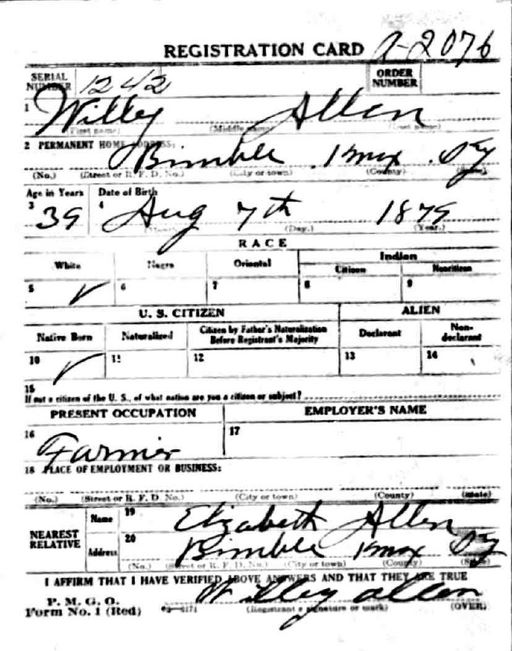 REGISTRATION CARD A-2076
SERIAL NUMBER 1242 ORDER NUMBER
1 Willey Allen
(First name) (Middle name) (Last name)
2 PERMANENT HOME ADDRESS: Bimble Knox Ky
(No.) (Street or R. F. D. No.) (City or town) (County) (State)
Age in Years Date of Birth
3 39 4 Aug 7th 1879
(Month.) (Day.) (Year.)
RACE
White Negro Oriental Indian
Citizen Noncitizen
5 ✓ 6 7 8 9
U. S. CITIZEN ALIEN
Native Born Naturalized Citizen by Father's Naturalization Before Registrant's Majority Declarant Non-declarant
10 ✓ 11 12 13 14
15
If not a citizen of the U. S., of what nation are you a citizen or subject?
PRESENT OCCUPATION EMPLOYER'S NAME
16 Farmer 17
18 PLACE OF EMPLOYMENT OR BUSINESS:
(No.) (Street or R. F. D. No.) (City or town) (County) (State)
NEAREST RELATIVE Name 19 Elizabeth Allen
Address 20 Bimble Knox Ky
(No.) (Street or R. F. D. No.) (City or town) (County) (State)
I AFFIRM THAT I HAVE VERIFIED ABOVE ANSWERS AND THAT THEY ARE TRUE
P. M. G. O.
Form No. 1 (Red) Willey Allen
(Registrant's signature or mark) (OVER)